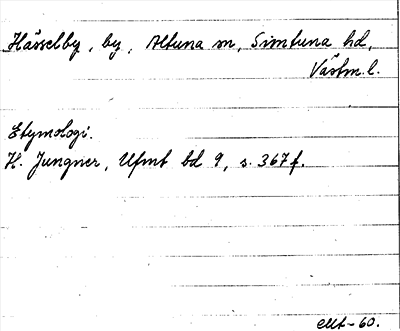 Hässelby, by, Altuna sn, Simtuna hd,
Västm. l.
Etymologi.
H. Jungner, Ufmt bd 9, s. 367 f.
-60.